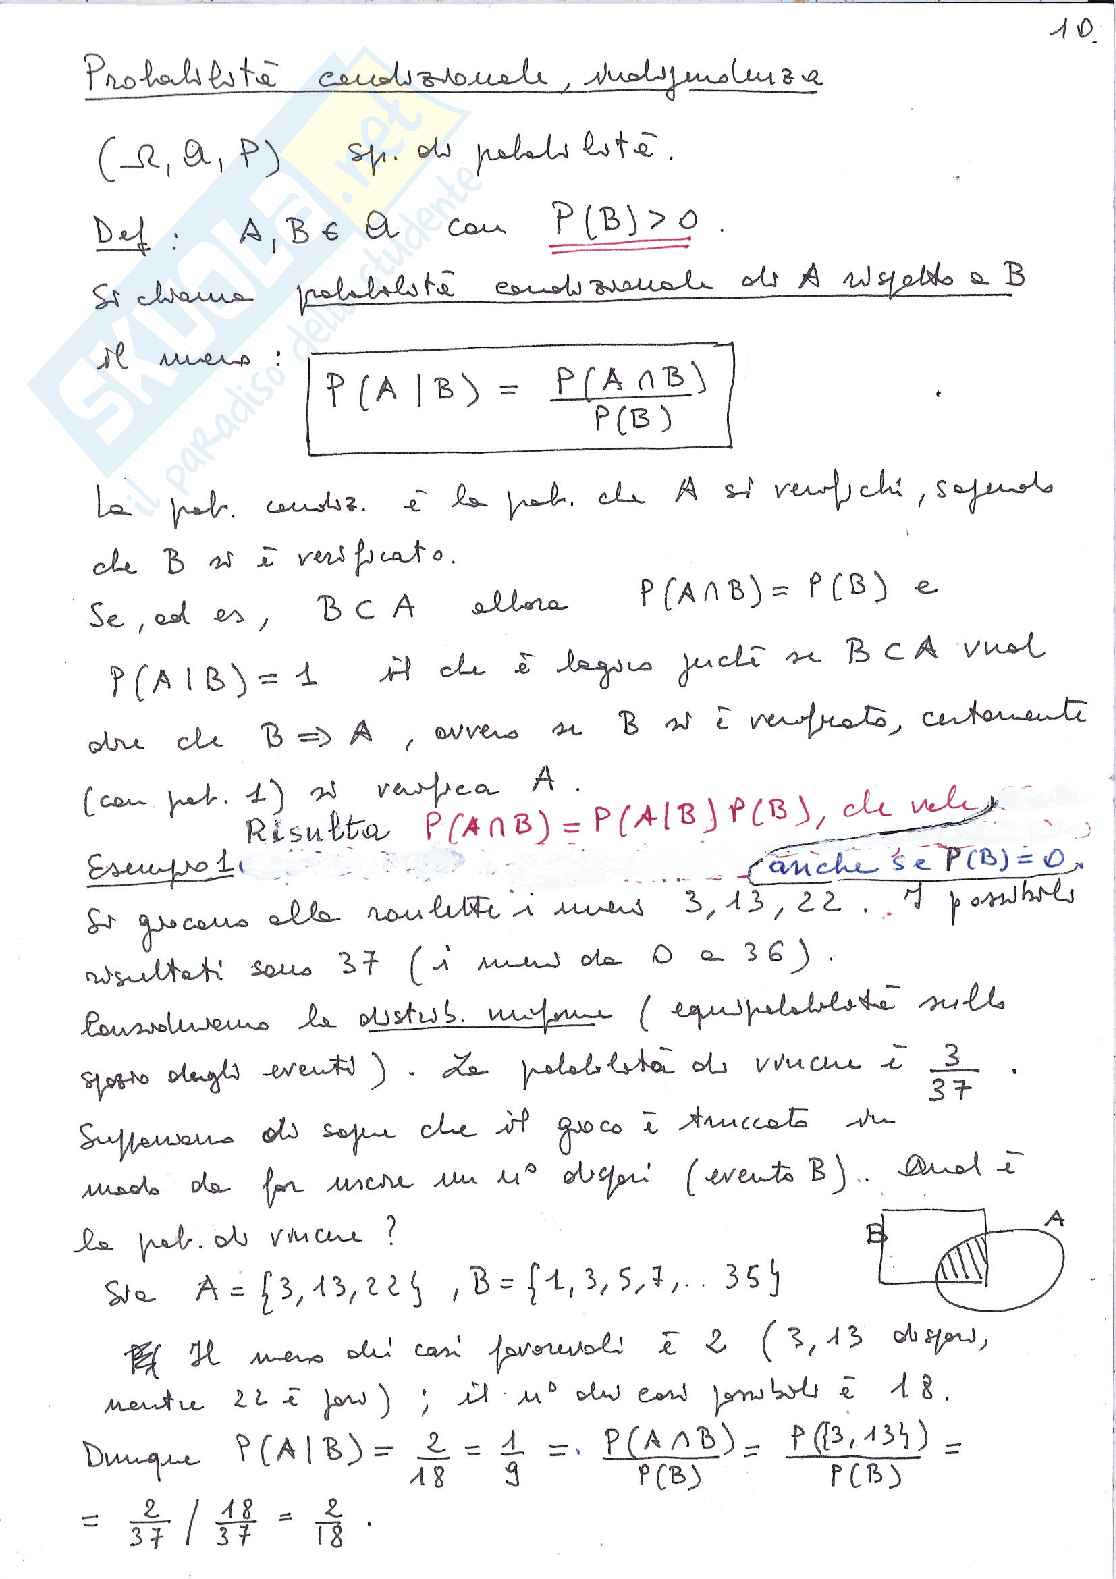 10.
Probabilità condizionale, indipendenza
(Ω, a, P) sp. di probabilità.
Def: A, B ∈ a con P(B) > 0.
Si chiama probabilità condizionale di A rispetto a B
il numero: P(A|B) = P(A∩B) / P(B)
La prob. condiz. è la prob. che A si verifichi, sapendo
che B si è verificato.
Se, ad es, B ⊂ A allora P(A∩B) = P(B) e
P(A|B) = 1 il che è logico perché se B ⊂ A vuol
dire che B ⇒ A, ovvero se B si è verificato, certamente
(con prob. 1) si verifica A.
Risulta P(A∩B) = P(A|B) P(B), che vale
anche se P(B) = 0.
Esempio 1.
Si giocano alla roulette i numeri 3, 13, 22. I possibili
risultati sono 37 (i numeri da 0 a 36).
Consideriamo la distrib. uniforme (equiprobabilità sullo
spazio degli eventi). La probabilità di vincere è 3/37.
Supponiamo di sapere che il gioco è truccato in
modo da far uscire un n° dispari (evento B). Qual è
la prob. di vincere?
B A
Sia A = {3, 13, 22}, B = {1, 3, 5, 7, .. 35}
Il numero dei casi favorevoli è 2 (3, 13 dispari,
mentre 22 è pari); il n° dei casi possibili è 18.
Dunque P(A|B) = 2/18 = 1/9 = P(A∩B)/P(B) = P({3, 13})/P(B) =
= 2/37 / 18/37 = 2/18.
SKUOLA.net
il paradiso dello studente